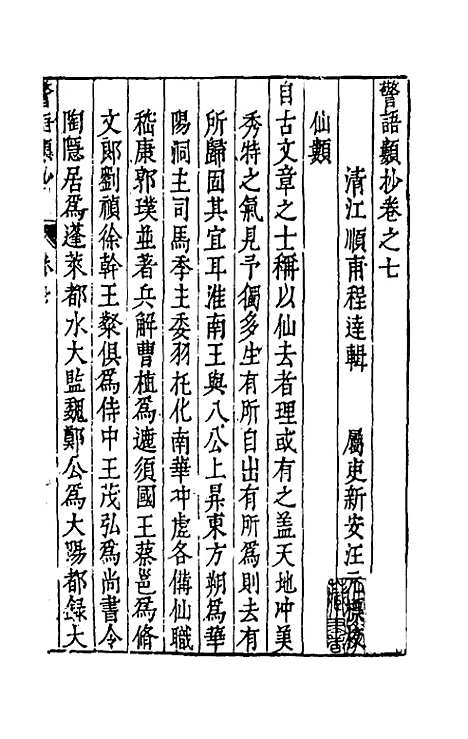 警語類抄卷之七
清江順甫程達輯 屬吏新安汪元標校
仙類
自古文章之士稱以仙去者理或有之蓋天地冲美
秀特之氣見予獨多生有所自出有所為則去有
所歸固其宜耳淮南王與八公上昇東方朔為華
陽洞主司馬季主委羽托化南華冲虛各備仙職
嵇康郭璞並著兵解曹植為遮須國王蔡邕為脩
文郎劉禎徐幹王粲俱為侍中王茂弘為尚書令
陶隱居為蓬萊都水大監魏鄭公為大陽都錄大
警語類抄
卷七